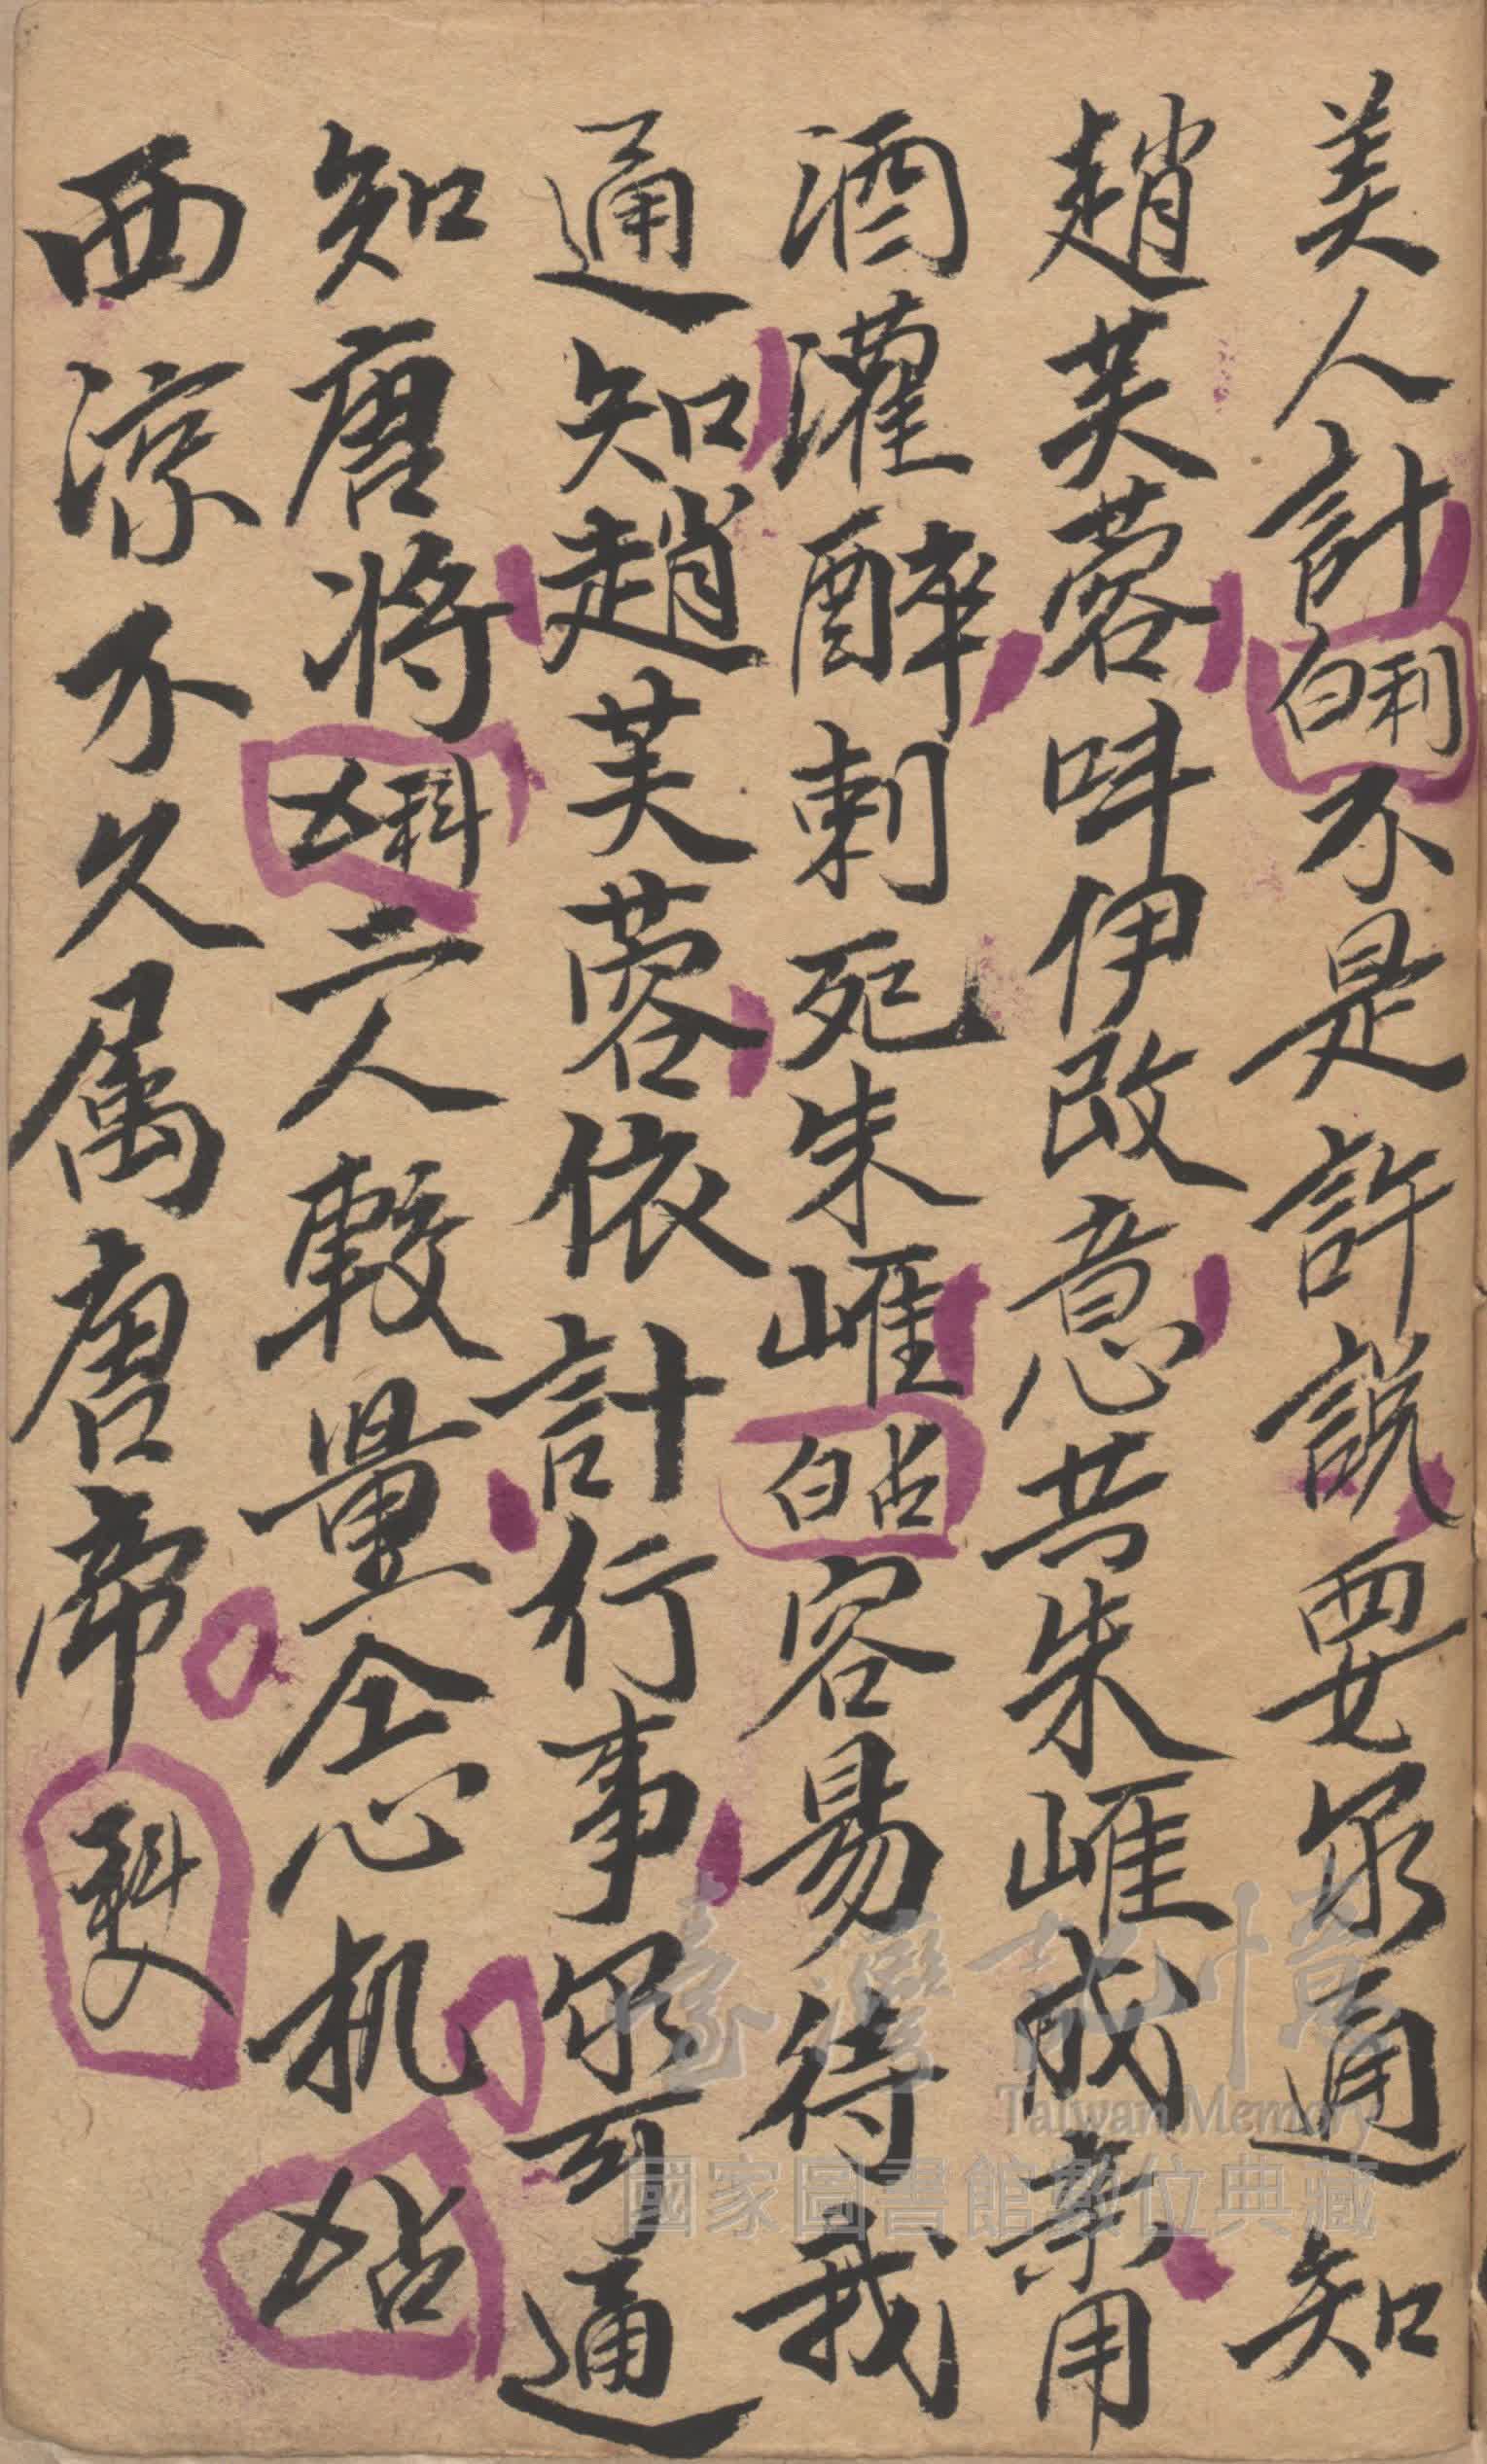 美人計白利不是許說要尔通知
趙芙蓉呌伊改意共朱崕成亲用
酒灌醉刺死朱崕白占容易待我
通知趙芙蓉依計行事尔可通
知唐將 科二人較量仝心机 占
西凉不久属唐帝 科
臺灣記憶
Taiwan Memory
國家圖書館數位典藏